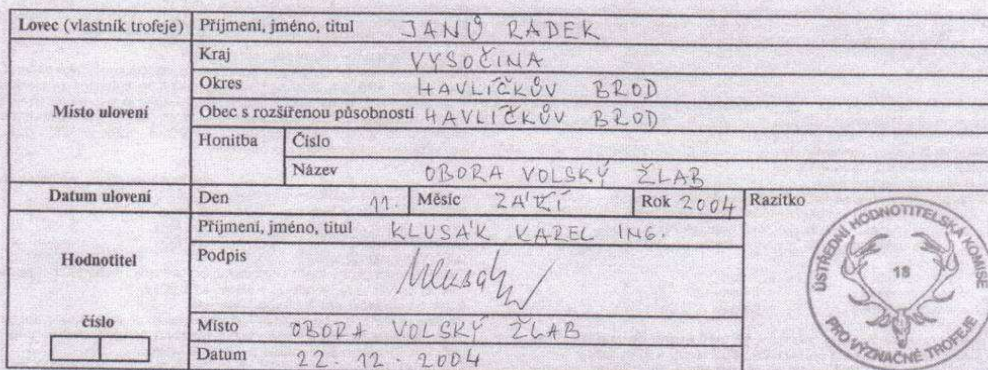 Lovec (vlastník trofeje) Příjmení, jméno, titul JANŮ RADEK
Místo ulovení
Kraj VYSOČINA
Okres HAVLÍČKŮV BROD
Obec s rozšířenou působností HAVLÍČKŮV BROD
Honitba Číslo
Název OBORA VOLSKÝ ŽLAB
Datum ulovení Den 11. Měsíc ZÁŘÍ Rok 2004 Razítko
Hodnotitel
Příjmení, jméno, titul KLUSÁK KAREL ING.
Podpis
číslo
Místo OBORA VOLSKÝ ŽLAB
Datum 22. 12. 2004
ÚSTŘEDNÍ HODNOTITELSKÁ KOMISE
18
PRO VÝZNAČNÉ TROFEJE